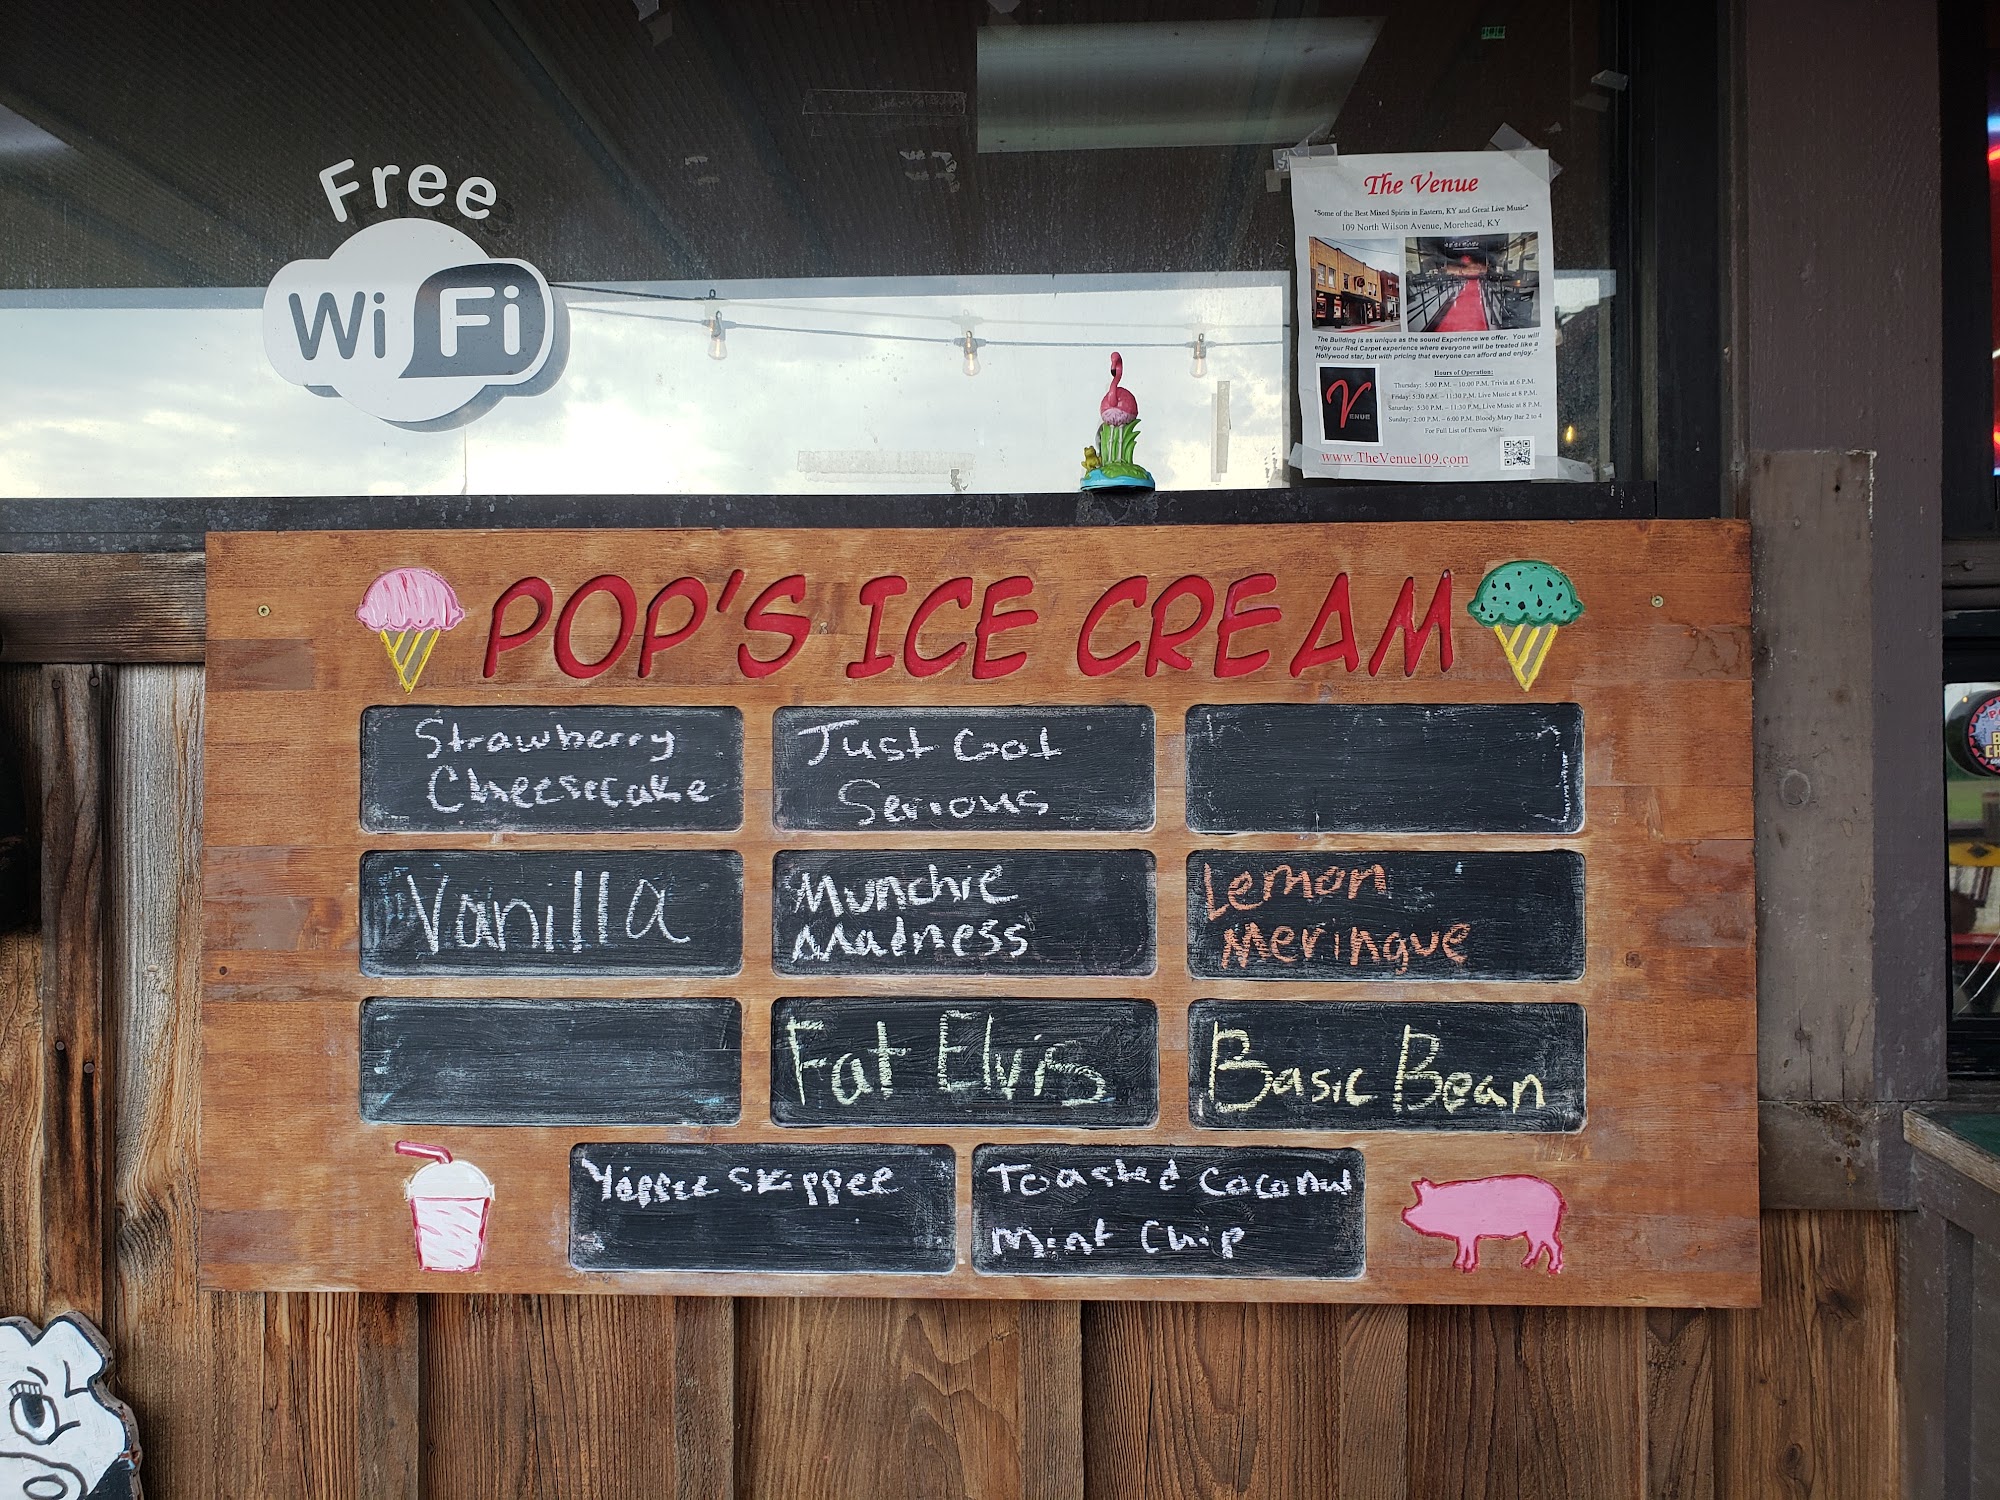 Free
Wi Fi
The Venue
"Some of the Best Mixed Spirits in Eastern, KY and Great Live Music"
109 North Wilson Avenue, Morehead, KY
The Building is as unique as the sound Experience we offer. You will
enjoy our Red Carpet experience where everyone will be treated like a
Hollywood star, but with pricing that everyone can afford and enjoy."
Hours of Operation:
Thursday: 5:00 P.M. – 10:00 P.M. Trivia at 6 P.M.
Friday: 5:30 P.M. – 11:30 P.M. Live Music at 8 P.M.
Saturday: 5:30 P.M. – 11:30 P.M. Live Music at 8 P.M.
Sunday: 2:00 P.M. – 6:00 P.M. Bloody Mary Bar 2 to 4
For Full List of Events Visit:
VENUE
www.TheVenue109.com
POP'S ICE CREAM
Strawberry
Cheesecake
Just Got
Serious
Vanilla
Munchie
Madness
Lemon
Meringue
Fat Elvis
Basic Bean
Yippee Skippee
Toasted Coconut
Mint Chip